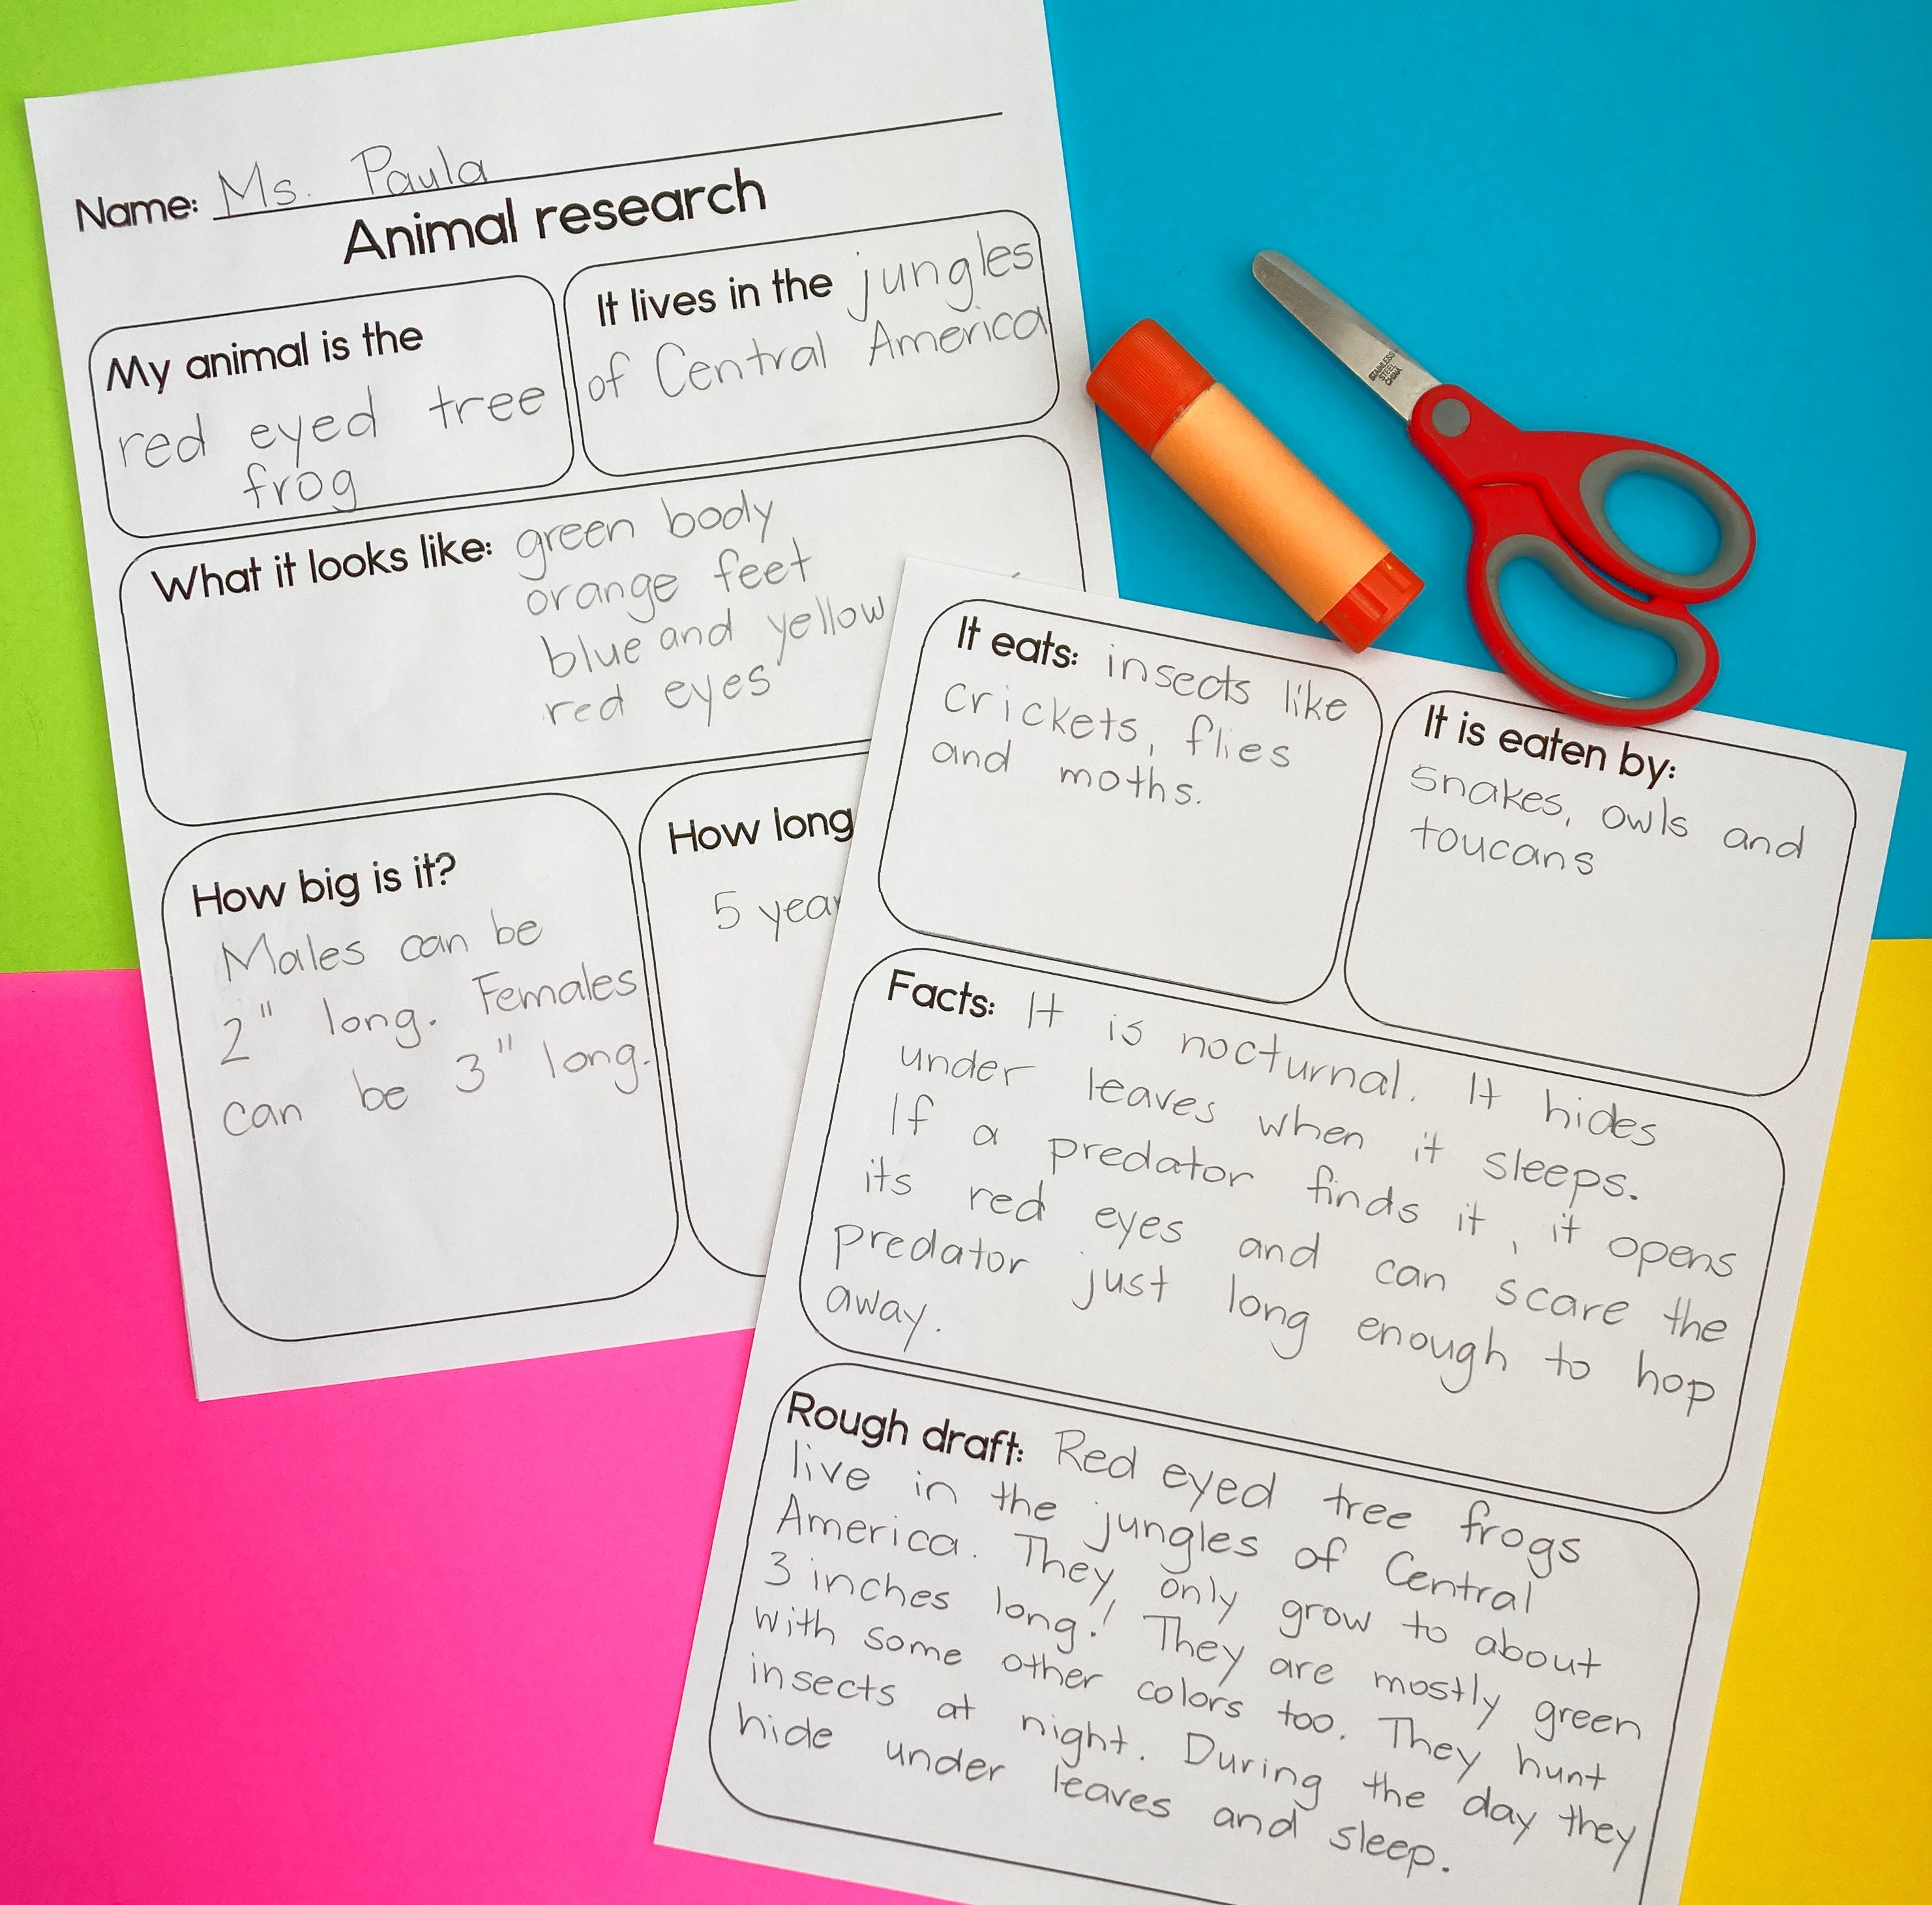 Name: Ms. Paula
Animal research
My animal is the
red eyed tree
frog
It lives in the jungles
of Central America
What it looks like: green body
orange feet
blue and yellow
red eyes
How big is it?
Males can be
2" long. Females
can be 3" long.
How long
5
It eats: insects like
crickets, flies
and moths.
It is eaten by:
snakes, owls and
toucans
Facts: It is nocturnal. It hides
under leaves when it sleeps.
If a predator finds it, it opens
its red eyes and can scare the
predator just long enough to hop
away.
Rough draft: Red eyed tree frogs
live in the jungles of Central
America. They only grow to about
3 inches long! They are mostly green
with some other colors too. They hunt
insects at night. During the day they
hide under leaves and sleep.
STAINLESS
STEEL
CHINA